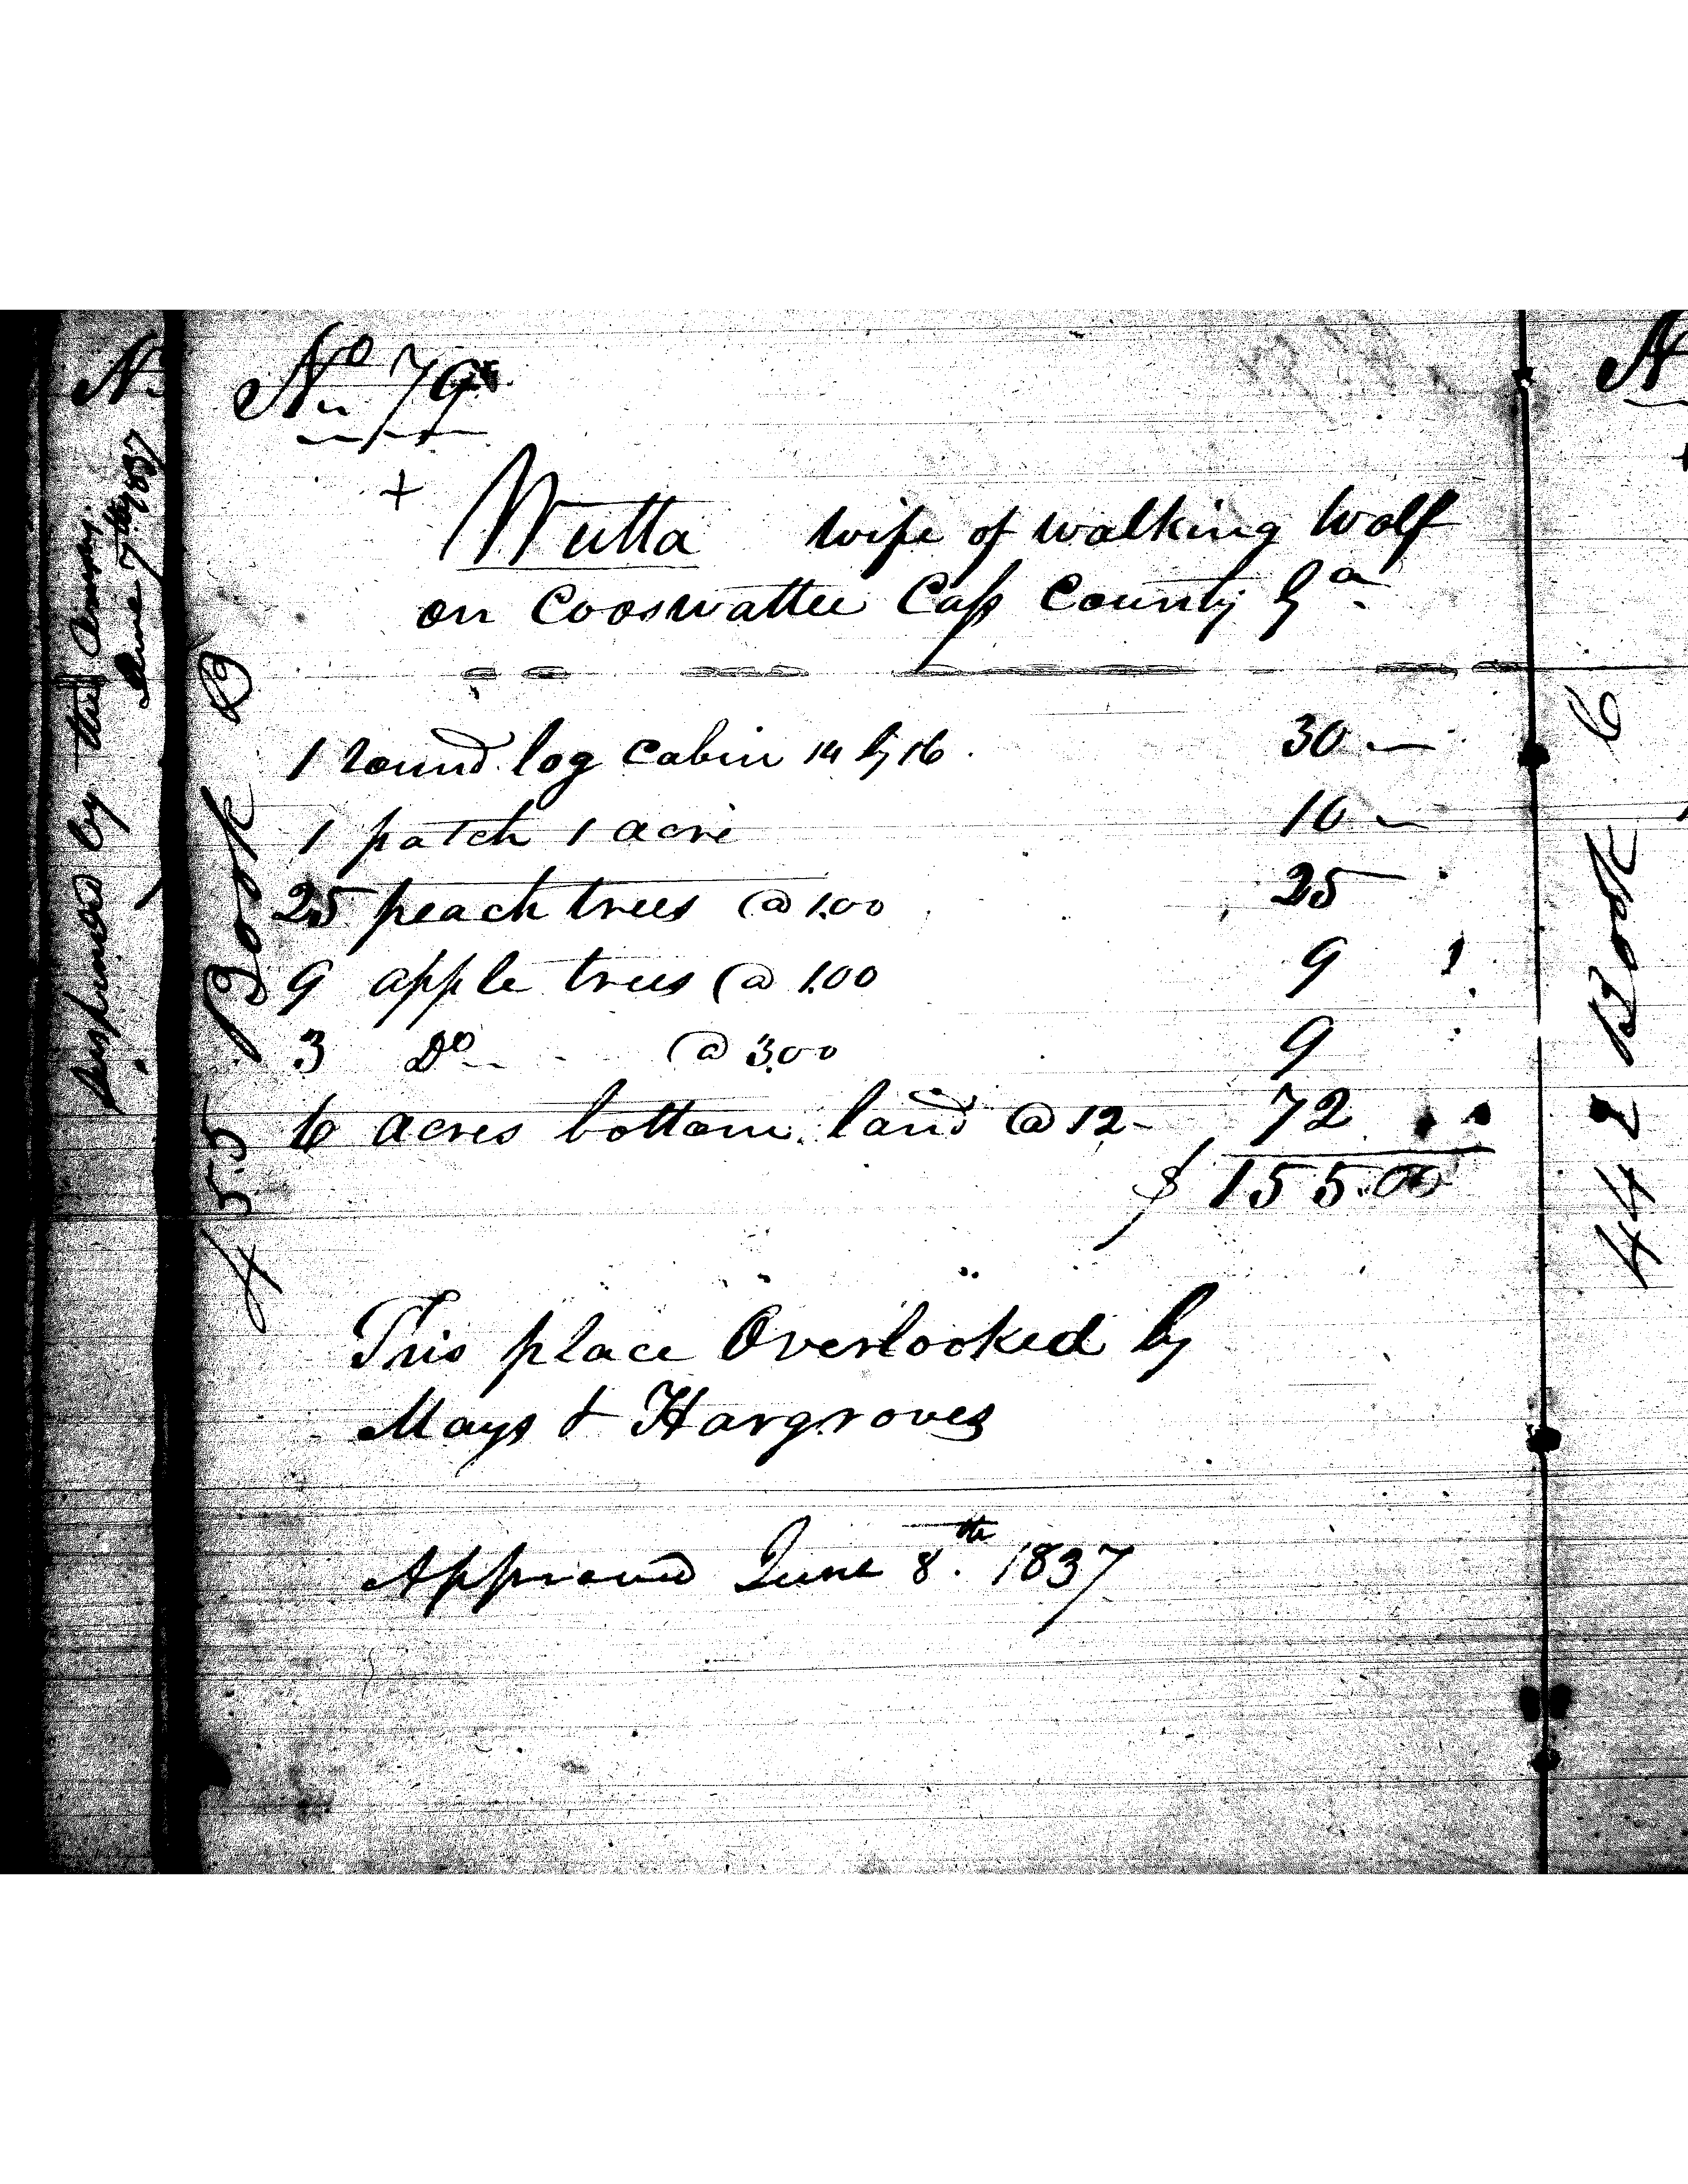 No 79
+
Wutta wife of walking Wolf
on Cooswattee Cass County Ga
1 round log Cabin 14 by 16 30
1 patch 1 acre 10
25 peach trees @ 1.00 25
9 apple trees @ 1.00 9
3 Do @ 3.00 9
6 acres bottom land @ 12 72
$155.00
This place Overlooked by
Mays & Hargroves
Approved June 8th 1837
455 Book B
by the
June 7th 1837
N
442 Book
N